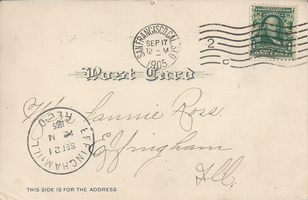 SAN FRANCISCO, CAL.
SEP 17
12 - M
1905
2
C
Post Card
Fannie Ross.
Effingham
Ill.
EFFINGHAM, ILL.
SEP 21
1905
REC'D
THIS SIDE IS FOR THE ADDRESS